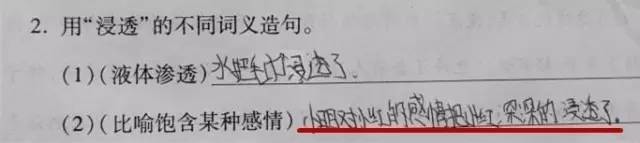 2. 用“浸透”的不同词义造句。
(1)(液体渗透)水把毛巾浸透了.
(2)(比喻饱含某种感情)小明对小红的感情把小红深深的浸透了.